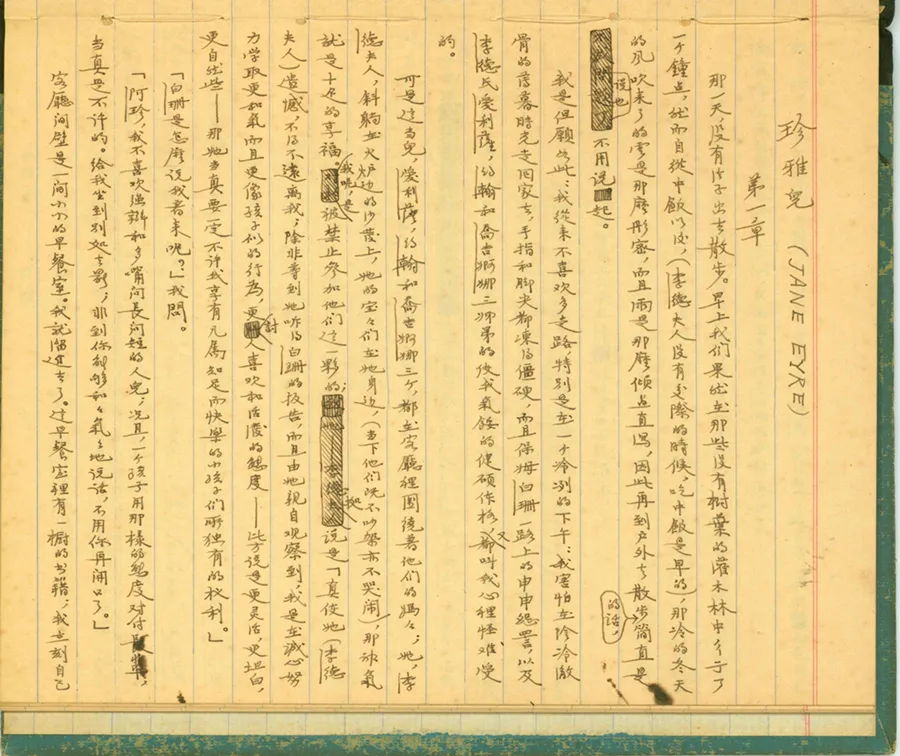 珍雅兒 (JANE EYRE)
第一章
那一天，沒有法子出去散步。早上我們果然在那些沒有樹葉的灌木林中，彳亍了
一个鐘点，然而自從中飯以後，（李德夫人沒有交際的時候，吃中飯是早的）那冷的冬天
的風吹来了的雲是那麼彤密，而且雨是那麼傾盆直瀉，因此再到戶外去散步的話，簡直是
說也不用說起。
我是但願如此：我從来不喜欢多走路，特別是在一个冷冽的下午：我害怕在陰冷澈
骨的薄暮時光走回家去，手指和脚尖都凍得僵硬，而且保姆白珊一路上的申申怨詈，以及
李德氏愛利薩，約翰和喬吉娜三姊弟的使我氣餒的健碩体格，又都叫我心裡怪难受
的。
可是这当兒，愛利薩，約翰和喬吉娜三个，都在客廳裡團繞著他們的媽々；她，李
德夫人，斜躺在火炉边的沙發上，她的宝々們在她身边，（当下他們既不吵架亦不哭鬧）那神氣
就是十足的享福。我呢，是被禁止參加他們这一夥的；她說是「真使她（李德
夫人）遺憾，不得不遠離我；除非等到她听得白珊的报告，而且由她親自观察到，我是在誠心努
力学取更和氣而且更像孩子似的行為，更討人喜欢和活潑的態度——比方說是更灵活，更坦白，
更自然些——那她当真要一定不许我享有凡属知足而快樂的小孩子們所独有的权利。」
「白珊是怎麼說我着来呢？」我問。
「阿珍，我不喜欢强辩和多嘴問長問短的人兒；况且，一个孩子用那樣的態度对付長輩，
当真是不许的。給我坐到別处去罷；非到你能够和々氣々地說話，不用你再開口了。」
客廳間壁是一間小小的早餐室。我就溜进去了。这早餐室裡有一櫥的书籍，我立刻自己